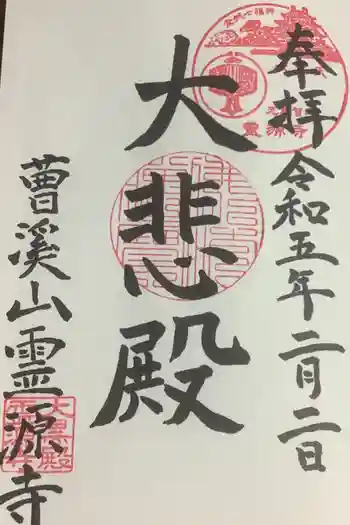 奉拝
令和五年二月二日
大悲殿
曹溪山霊源寺
霊源寺